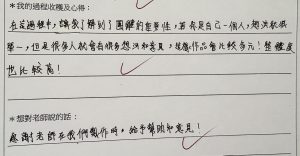 *我的過程收穫及心得：
在這過程中，讓我了解到了團體的重要性，若只是自己一個人，想法就很
單一，但是很多人就會有很多想法和意見，這樣作品會比較多元！整體度
也比較高！
*想對老師說的話：
感謝老師在我們製作時，給予幫助和意見！